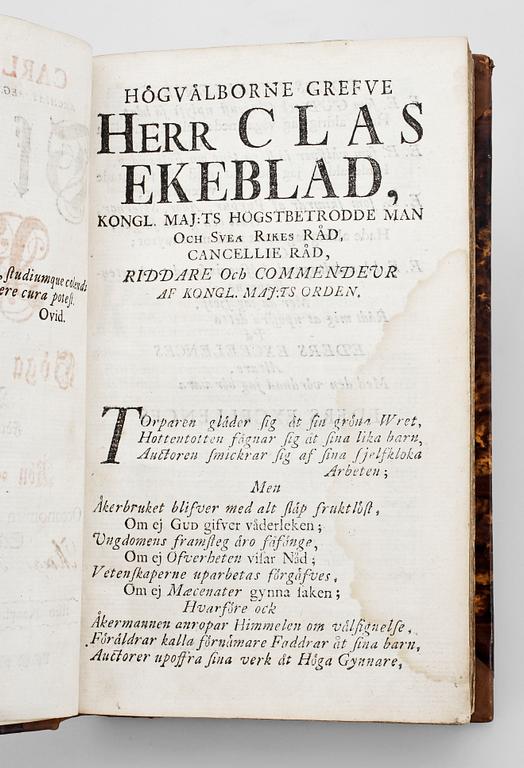 CARL
, studiumque colendi
ere cura potest.
Ovid.
HÖGVÅLBORNE GREFVE
HERR CLAS
EKEBLAD,
KONGL. MAJ:TS HÖGSTBETRODDE MAN
OCH SVEA RIKES RÅD,
CANCELLIE RÅD,
RIDDARE Och COMMENDEUR
AF KONGL. MAJ:TS ORDEN.
TOrparen glåder sig åt sin gröna Wret,
Hottentotten fågnar sig åt sina lika barn,
Auctoren smickrar sig af sina sjelfkloka
Arbeten;
Men
Åkerbruket blifver med alt slåp fruktlöst,
Om ej GUD gifver våderleken;
Ungdomens framsteg åro fåfånge,
Om ej Ofverheten visar Nåd;
Vetenskaperne uparbetas förgåfves,
Om ej Mæcenater gynna saken;
Hvarföre ock
Åkermannen anropar Himmelen om vålsignelse,
Föråldrar kalla förnåmare Faddrar åt sina barn,
Auctorer upoffra sina verk åt Höga Gynnare,